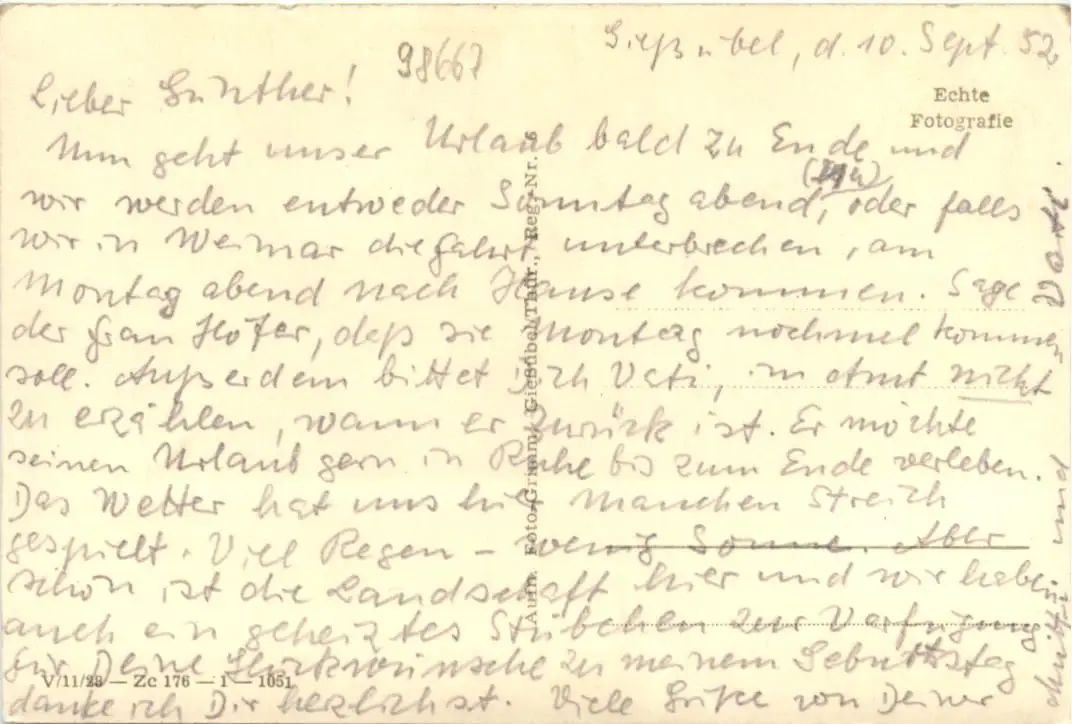 98667
Gießübel, d. 10. Sept. 52
Echte
Fotografie
Lieber Günther!
Nun geht unser Urlaub bald zu Ende und
wir werden entweder Sonntag abend, oder falls
wir in Weimar die Fahrt unterbrechen, am
Montag abend nach Hause kommen. Sage
der Frau Höfer, daß sie Montag nochmal kommen
soll. Außerdem bittet Dich Vati, im Amt nicht
zu erzählen, wann er zurück ist. Er möchte
seinen Urlaub gern in Ruhe bis zum Ende verleben.
Das Wetter hat uns hier manchen Streich
gespielt. Viel Regen – wenig Sonne. Aber
schön ist die Landschaft hier und wir haben
auch ein geheiztes Stübchen zur Verfügung
Für Deine Glückwünsche zu meinem Geburtstag
danke ich Dir herzlichst. Viele Grüße von Deiner
und Vati.
Aufn. Foto-Grimm, Gießübel/Thür., Reg.-Nr. 6
V/11/28 — Zc 176 — 1 — 1051